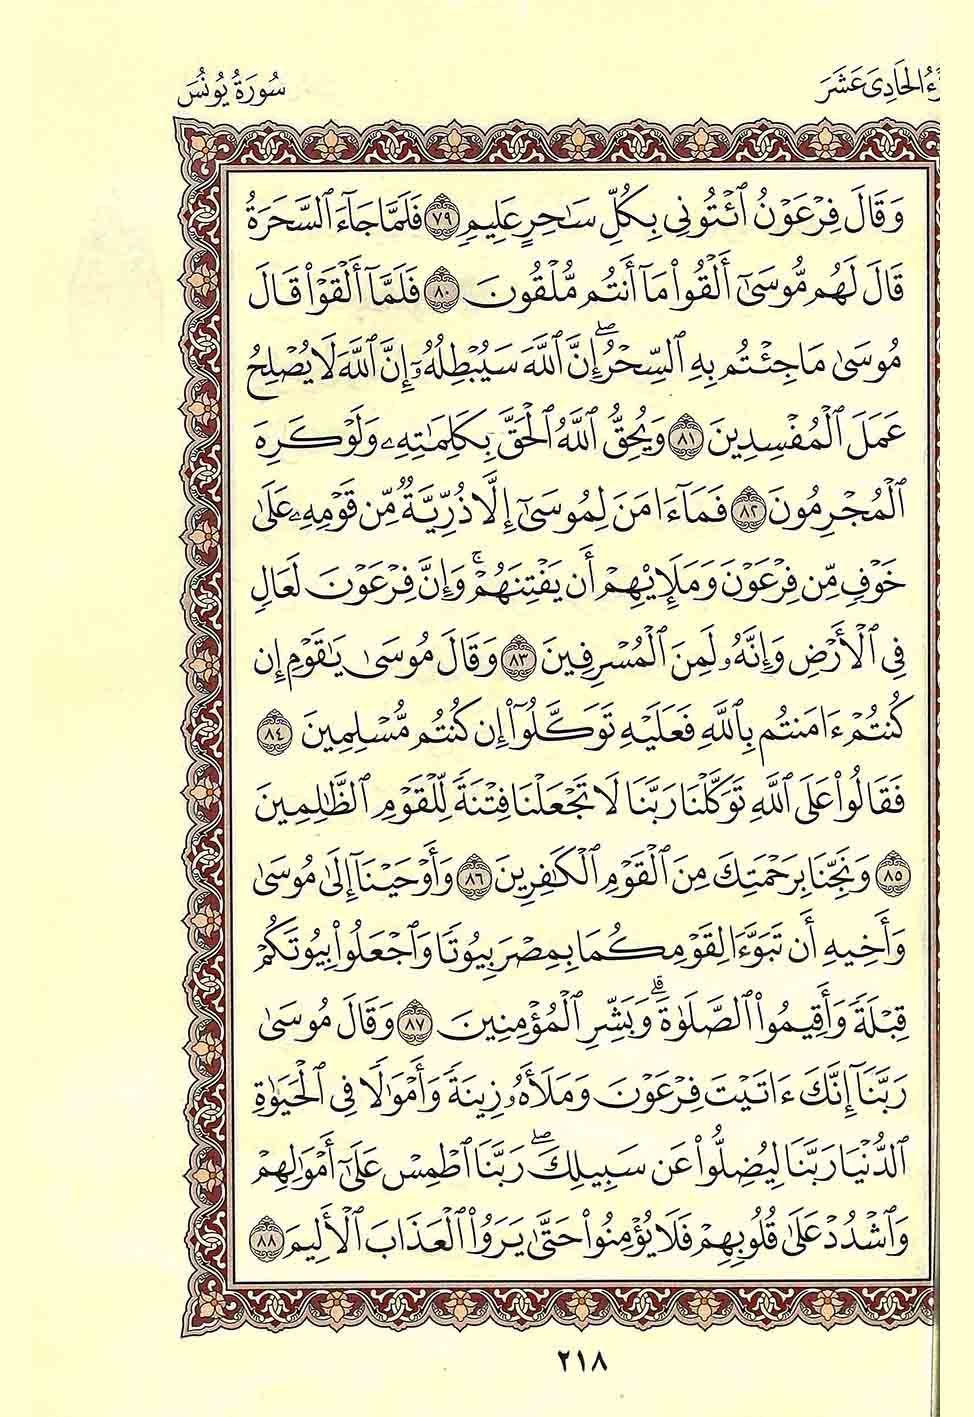 ـزْءُ الحَادِىَ عَشَرَ
سُورَةُ يُونُسَ
وَقَالَ فِرْعَوْنُ ٱئْتُونِى بِكُلِّ سَـٰحِرٍ عَلِيمٍ ٧٩ فَلَمَّا جَآءَ ٱلسَّحَرَةُ
قَالَ لَهُم مُّوسَىٰٓ أَلْقُوا۟ مَآ أَنتُم مُّلْقُونَ ٨٠ فَلَمَّآ أَلْقَوْا۟ قَالَ
مُوسَىٰ مَا جِئْتُم بِهِ ٱلسِّحْرُ ۖ إِنَّ ٱللَّهَ سَيُبْطِلُهُۥٓ إِنَّ ٱللَّهَ لَا يُصْلِحُ
عَمَلَ ٱلْمُفْسِدِينَ ٨١ وَيُحِقُّ ٱللَّهُ ٱلْحَقَّ بِكَلِمَـٰتِهِۦ وَلَوْ كَرِهَ
ٱلْمُجْرِمُونَ ٨٢ فَمَآ ءَامَنَ لِمُوسَىٰٓ إِلَّا ذُرِّيَّةٌ مِّن قَوْمِهِۦ عَلَىٰ
خَوْفٍ مِّن فِرْعَوْنَ وَمَلَإِي۟هِمْ أَن يَفْتِنَهُمْ ۚ وَإِنَّ فِرْعَوْنَ لَعَالٍ
فِى ٱلْأَرْضِ وَإِنَّهُۥ لَمِنَ ٱلْمُسْرِفِينَ ٨٣ وَقَالَ مُوسَىٰ يَـٰقَوْمِ إِن
كُنتُمْ ءَامَنتُم بِٱللَّهِ فَعَلَيْهِ تَوَكَّلُوٓا۟ إِن كُنتُم مُّسْلِمِينَ ٨٤
فَقَالُوا۟ عَلَى ٱللَّهِ تَوَكَّلْنَا رَبَّنَا لَا تَجْعَلْنَا فِتْنَةً لِّلْقَوْمِ ٱلظَّـٰلِمِينَ
٨٥ وَنَجِّنَا بِرَحْمَتِكَ مِنَ ٱلْقَوْمِ ٱلْكَـٰفِرِينَ ٨٦ وَأَوْحَيْنَآ إِلَىٰ مُوسَىٰ
وَأَخِيهِ أَن تَبَوَّءَا لِقَوْمِكُمَا بِمِصْرَ بُيُوتًا وَٱجْعَلُوا۟ بُيُوتَكُمْ
قِبْلَةً وَأَقِيمُوا۟ ٱلصَّلَوٰةَ ۗ وَبَشِّرِ ٱلْمُؤْمِنِينَ ٨٧ وَقَالَ مُوسَىٰ
رَبَّنَآ إِنَّكَ ءَاتَيْتَ فِرْعَوْنَ وَمَلَأَهُۥ زِينَةً وَأَمْوَٰلًا فِى ٱلْحَيَوٰةِ
ٱلدُّنْيَا رَبَّنَا لِيُضِلُّوا۟ عَن سَبِيلِكَ ۖ رَبَّنَا ٱطْمِسْ عَلَىٰٓ أَمْوَٰلِهِمْ
وَٱشْدُدْ عَلَىٰ قُلُوبِهِمْ فَلَا يُؤْمِنُوا۟ حَتَّىٰ يَرَوُا۟ ٱلْعَذَابَ ٱلْأَلِيمَ ٨٨
٢١٨